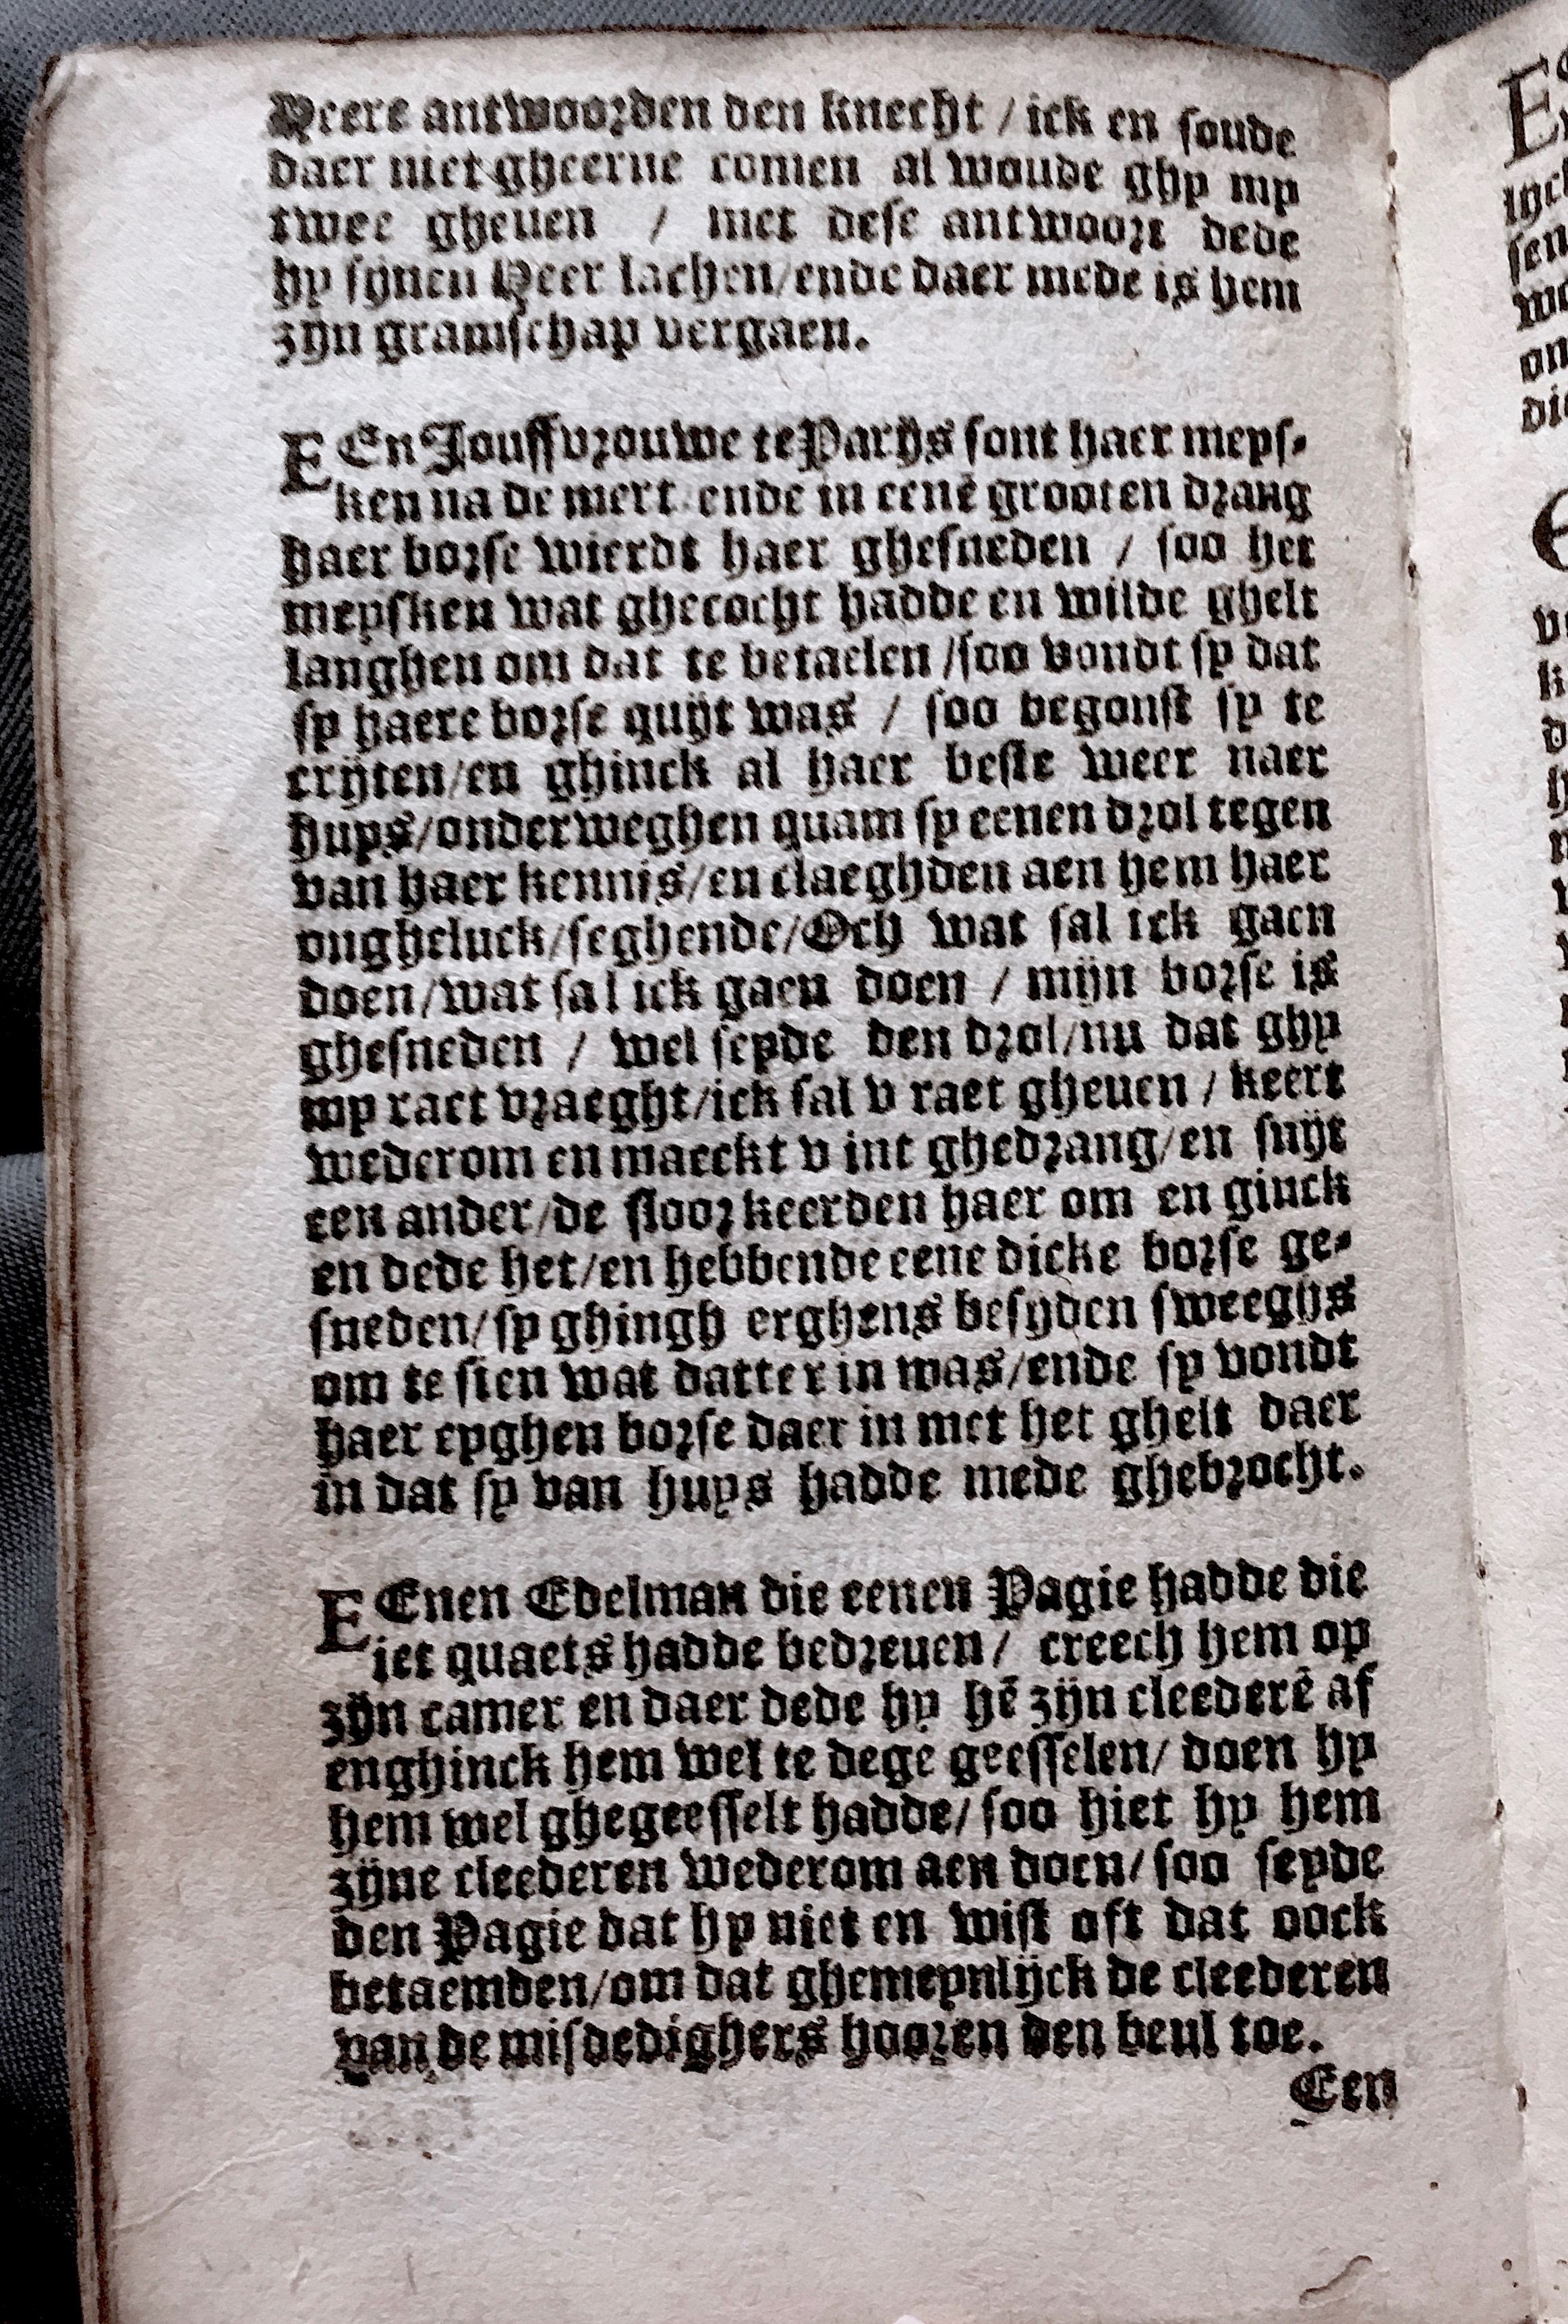 Heere antwoorden den knecht / ick en soude
daer niet gheerne comen al woude ghy my
twee gheuen / met dese antwoort dede
hy sijnen Heer lachen/ende daer mede is hem
zijn gramschap vergaen.
EEn Jouffvrouwe te Parijs sont haer meys-
ken na de mert ende in eenē grooten drang
haer borse wierdt haer ghesneden / soo het
meysken wat ghecocht hadde en wilde ghelt
langhen om dat te betaelen /soo vondt sy dat
sy haere borse quijt was / soo begonst sy te
crijten/en ghinck al haer beste weer naer
huys/onderweghen quam sy eenen drol tegen
van haer kennis/en claeghden aen hem haer
ongheluck/seghende/Och wat sal ick gaen
doen/wat sal ick gaen doen / mijn borse is
ghesneden / wel seyde den drol/nu dat ghy
my raet vraeght/ick sal v raet gheuen / keert
wederom en maeckt v int ghedrang/en snijt
een ander/de sloor keerden haer om en ginck
en dede het/en hebbende eene dicke borse ge-
sneden/sy ghingh erghens besyden sweeghs
om te sien wat datter in was/ende sy vondt
haer eyghen borse daer in met het ghelt daer
in dat sy van huys hadde mede ghebrocht.
EEnen Edelman die eenen Pagie hadde die
iet quaets hadde bedreuen / creech hem op
zijn camer en daer dede hy hē zijn cleederē af
enghinck hem wel te dege geesselen/ doen hy
hem wel ghegeesselt hadde/ soo hiet hy hem
zijne cleederen wederom aen doen/ soo seyde
den Pagie dat hy niet en wist oft dat oock
betaemden/om dat ghemeynlijck de cleederen
van de misdedighers hooren den beul toe.
Een